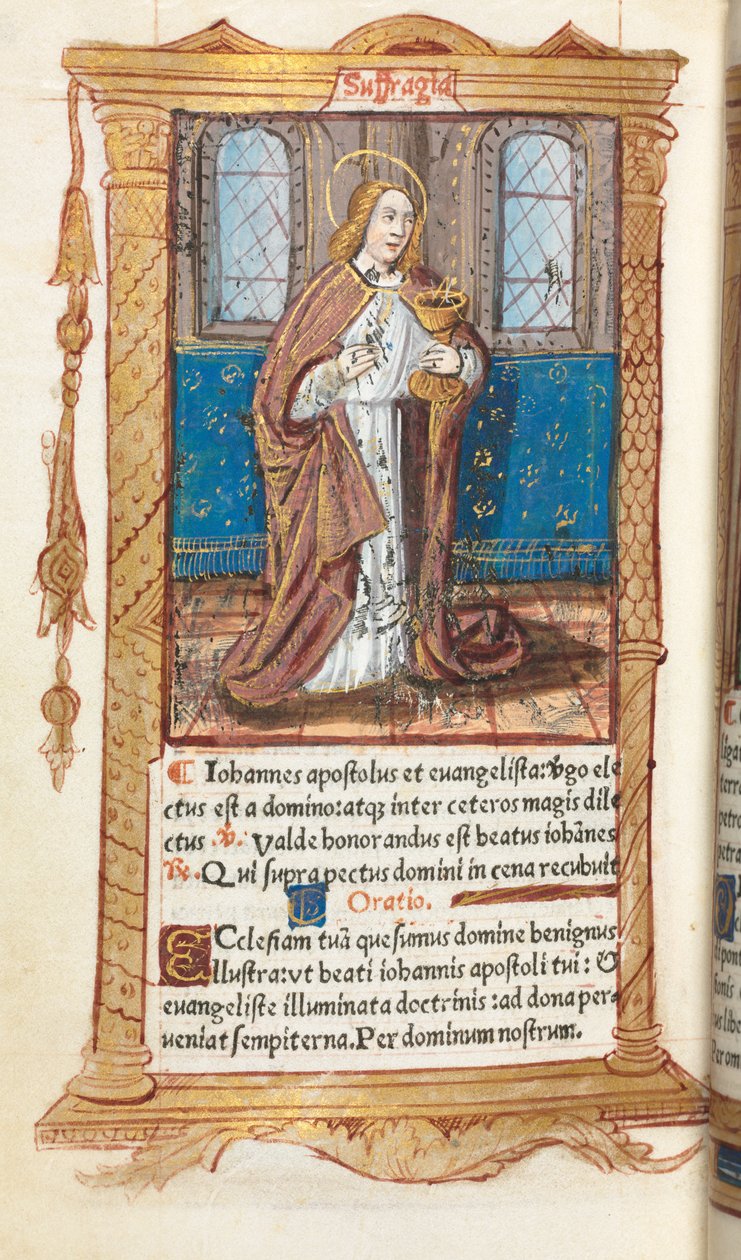 Suffragia
¶ Iohannes apostolus et euangelista: Vgo ele
ctus est a domino: atqꝫ inter ceteros magis dile
ctus ℣. Valde honorandus est beatus iohānes
℟. Qui supra pectus domini in cena recubuit
Oratio.
ECclesiam tuā quesumus domine benignus
illustra: vt beati iohannis apostoli tui: &
euangeliste illuminata doctrinis: ad dona per-
ueniat sempiterna. Per dominum nostrum.
ligau
terra
petro
petra
pont
ionis
us libe
Per om